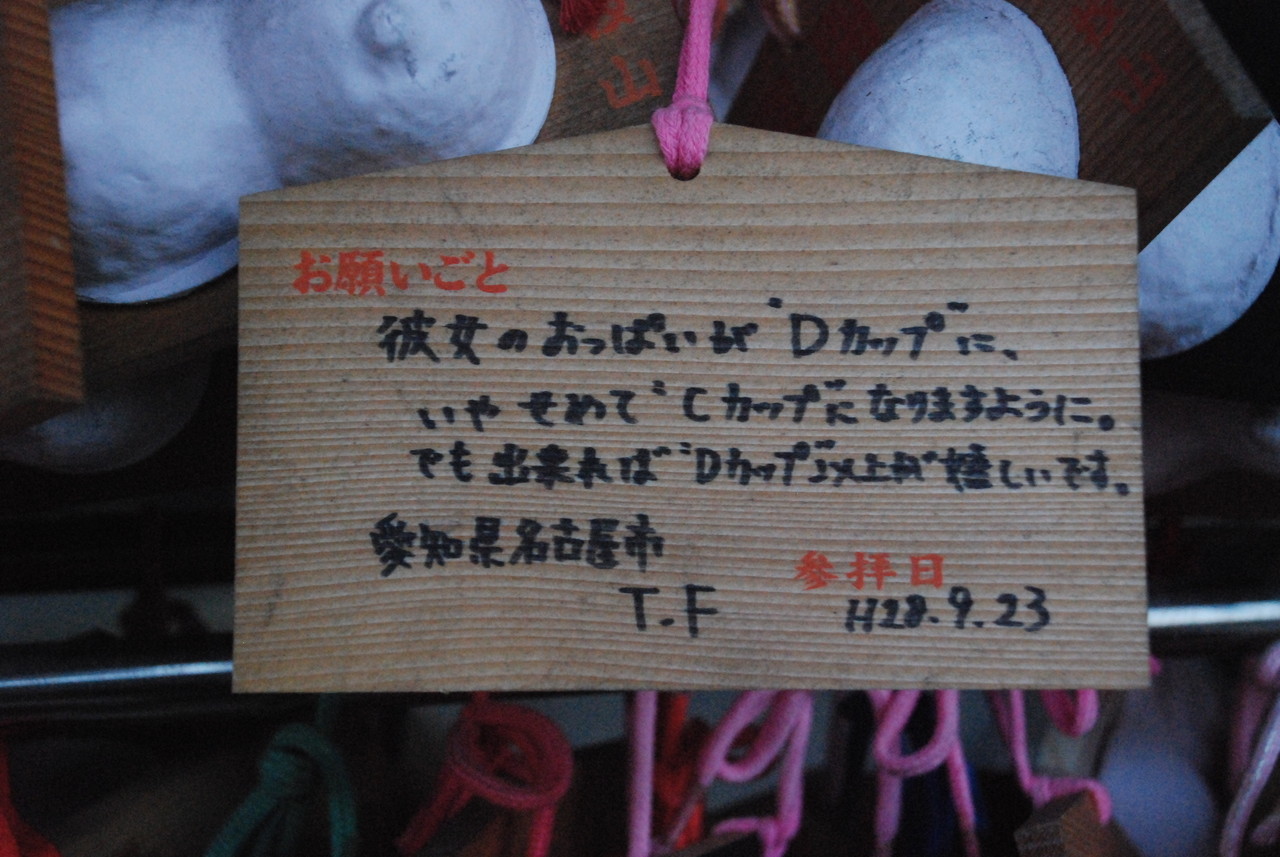 山
山
お願いごと
彼女のおっぱいが"Dカップ"に、
いやせめて"Cカップ"になりますように。
でも出来れば"Dカップ"以上が嬉しいです。
愛知県名古屋市
T.F
参拝日
H28.9.23